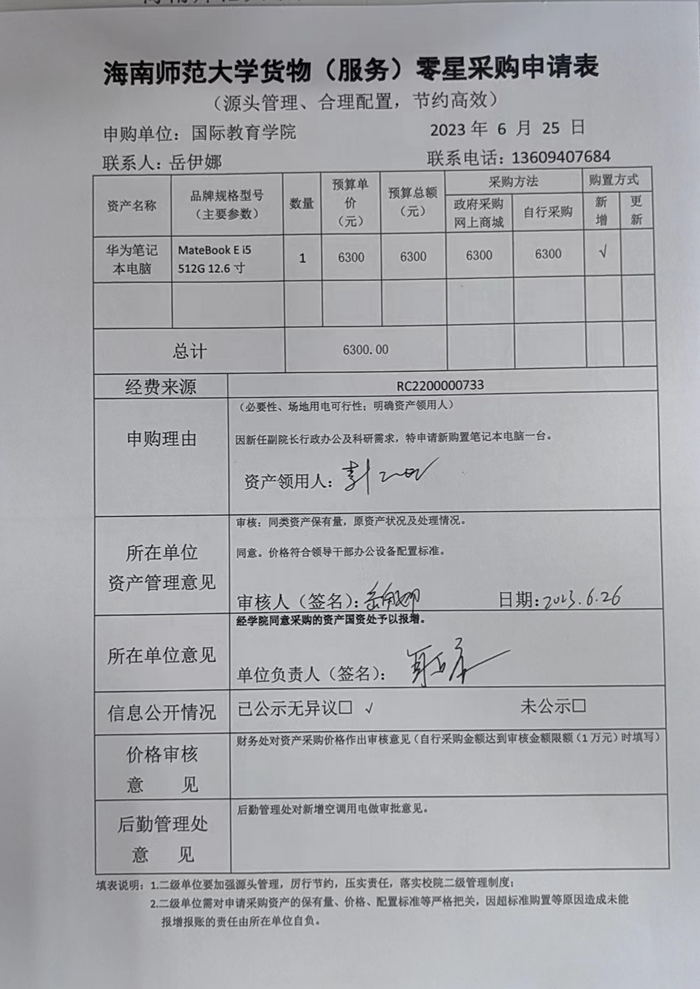 海南师范大学货物（服务）零星采购申请表
（源头管理、合理配置，节约高效）
申购单位：国际教育学院 2023 年 6 月 25 日
联系人：岳伊娜 联系电话：13609407684
资产名称 品牌规格型号（主要参数） 数量 预算单价（元） 预算总额（元） 采购方法 购置方式
政府采购网上商城 自行采购 新增 更新
华为笔记本电脑 MateBook E i5 512G 12.6 寸 1 6300 6300 6300 6300 √
总计 6300.00
经费来源 RC2200000733
申购理由
（必要性、场地用电可行性；明确资产领用人）
因新任副院长行政办公及科研需求，特申请新购置笔记本电脑一台。
资产领用人：
所在单位资产管理意见
审核：同类资产保有量，原资产状况及处理情况。
同意。价格符合领导干部办公设备配置标准。
审核人（签名）：岳伊娜 日期：2023.6.26
所在单位意见
经学院同意采购的资产国资处予以报增。
单位负责人（签名）：
信息公开情况 已公示无异议□ √ 未公示□
价格审核意 见
财务处对资产采购价格作出审核意见（自行采购金额达到审核金额限额（1 万元）时填写）
后勤管理处意 见
后勤管理处对新增空调用电做审批意见。
填表说明：1.二级单位要加强源头管理，厉行节约，压实责任，落实校院二级管理制度；
2.二级单位需对申请采购资产的保有量、价格、配置标准等严格把关，因超标准购置等原因造成未能
报增报账的责任由所在单位自负。